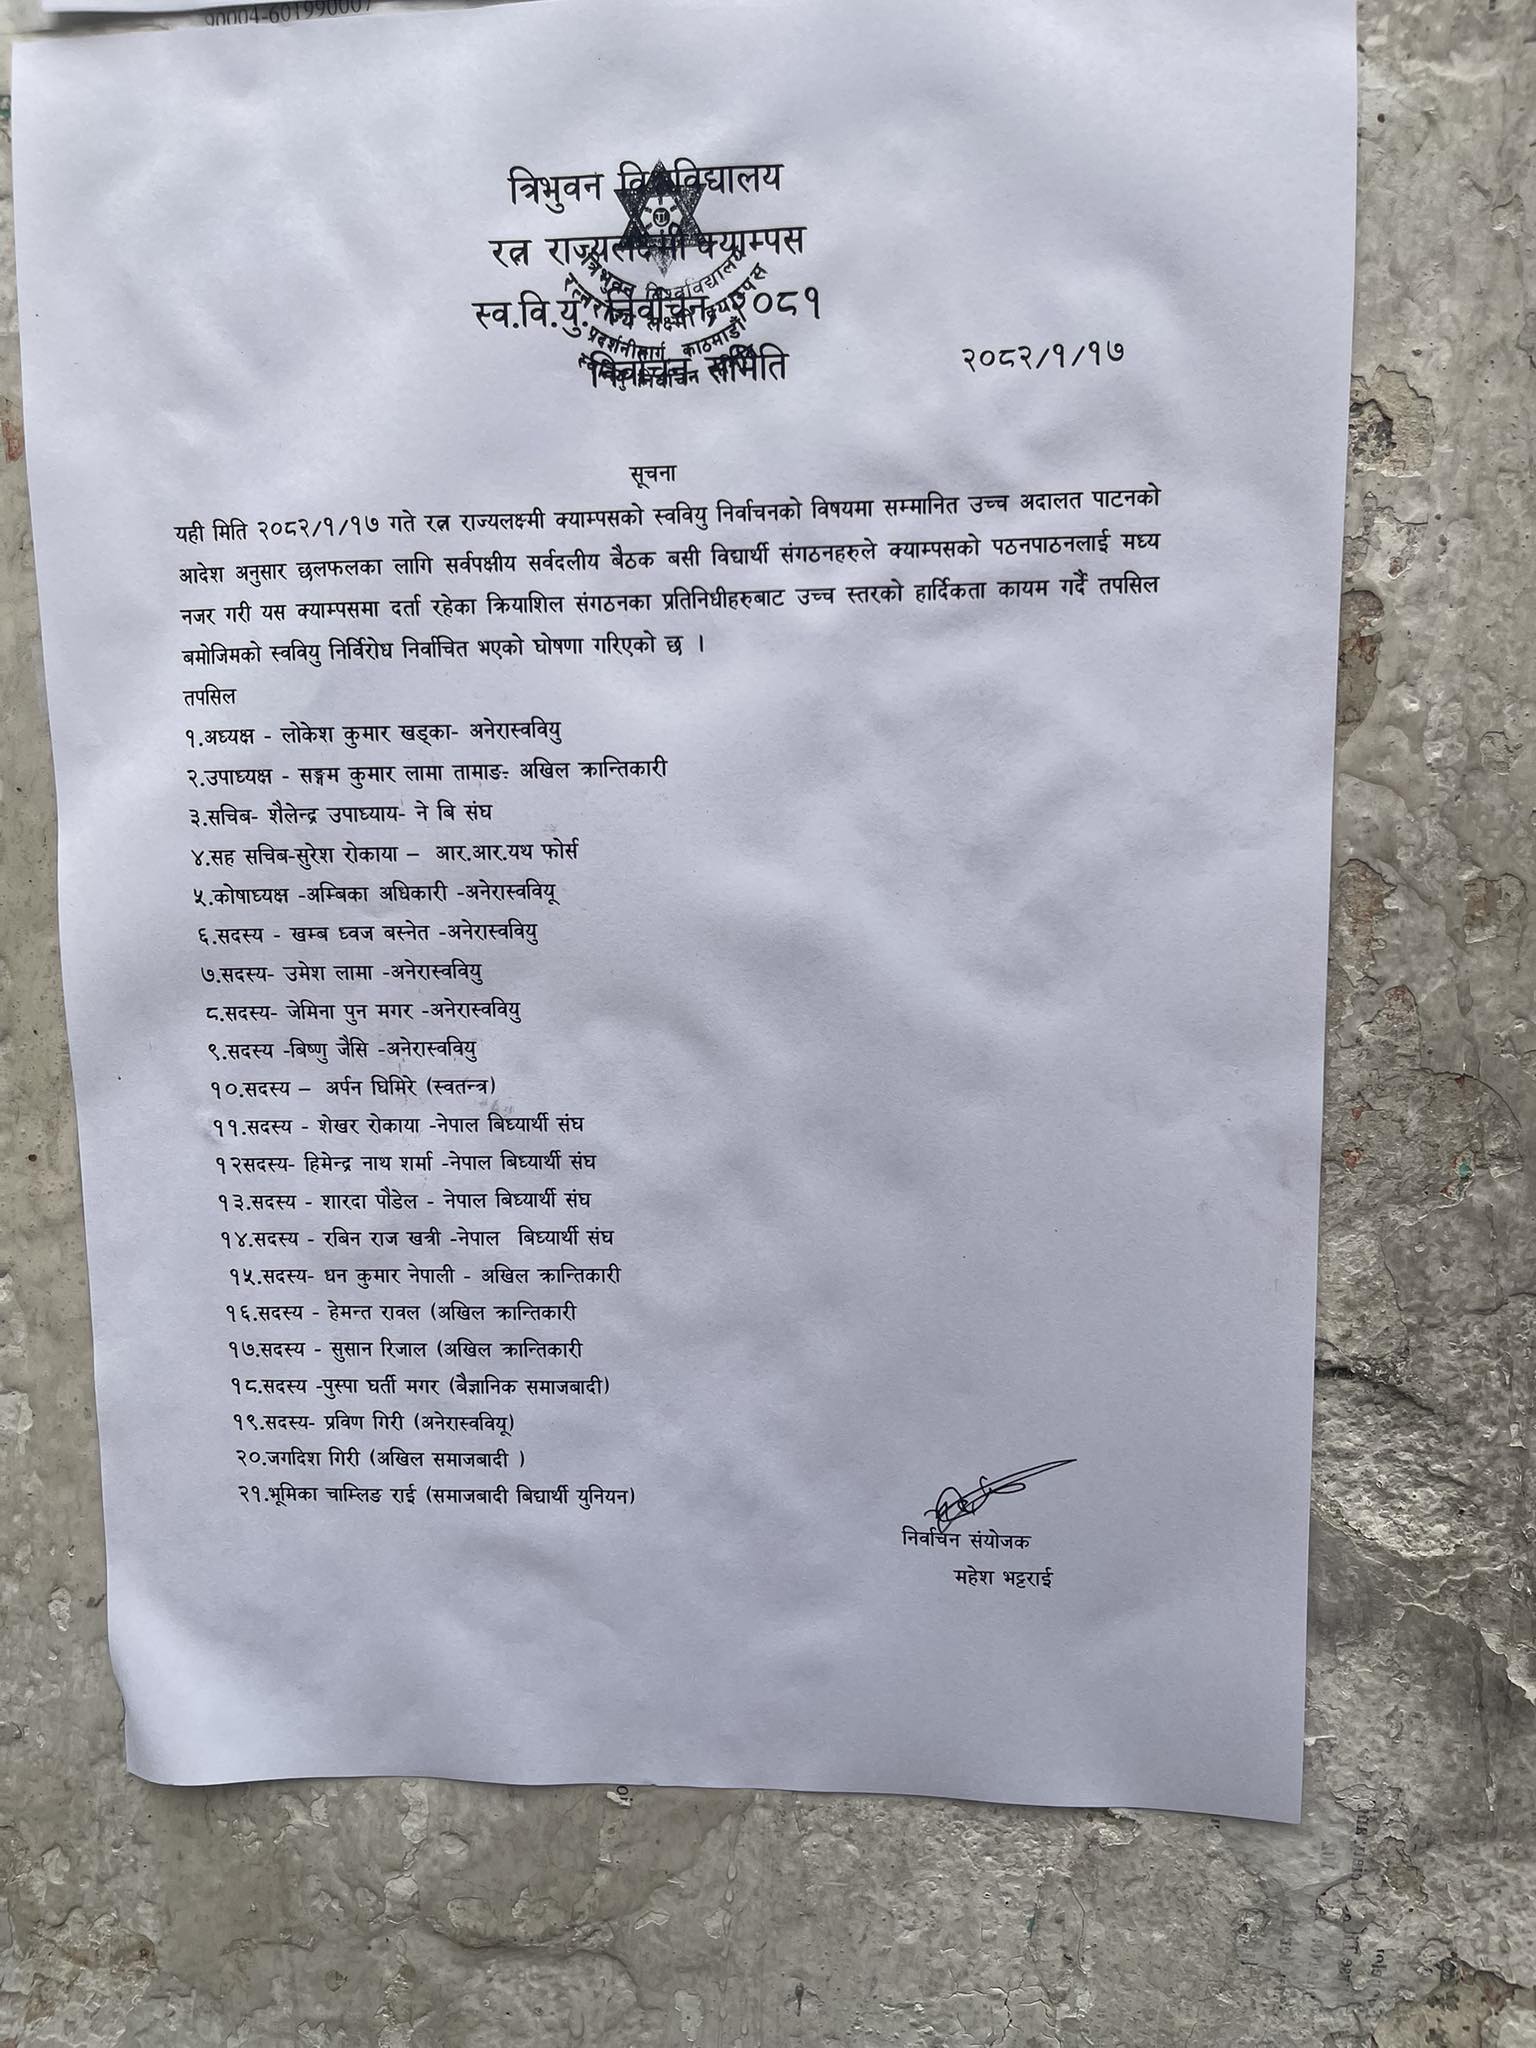 90004-601990007
त्रिभुवन विश्वविद्यालय
रत्न राज्यलक्ष्मी क्याम्पस
स्व.वि.यु. निर्वाचन २०८१
निर्वाचन समिति
२०८२/१/१७
त्रिभुवन विश्वविद्यालय
रत्न राज्य लक्ष्मी क्याम्पस
प्रदर्शनीमार्ग काठमाडौं
निर्वाचन
सूचना
यही मिति २०८२/१/१७ गते रत्न राज्यलक्ष्मी क्याम्पसको स्ववियु निर्वाचनको विषयमा सम्मानित उच्च अदालत पाटनको
आदेश अनुसार छलफलका लागि सर्वपक्षीय सर्वदलीय बैठक बसी विद्यार्थी संगठनहरुले क्याम्पसको पठनपाठनलाई मध्य
नजर गरी यस क्याम्पसमा दर्ता रहेका क्रियाशिल संगठनका प्रतिनिधीहरुबाट उच्च स्तरको हार्दिकता कायम गर्दै तपसिल
बमोजिमको स्ववियु निर्विरोध निर्वाचित भएको घोषणा गरिएको छ ।
तपसिल
१.अध्यक्ष - लोकेश कुमार खड्का- अनेरास्ववियु
२.उपाध्यक्ष - सङ्गम कुमार लामा तामाङ- अखिल क्रान्तिकारी
३.सचिब- शैलेन्द्र उपाध्याय- ने बि संघ
४.सह सचिब-सुरेश रोकाया – आर.आर.यथ फोर्स
५.कोषाध्यक्ष -अम्बिका अधिकारी -अनेरास्ववियू
६.सदस्य - खम्ब ध्वज बस्नेत -अनेरास्ववियु
७.सदस्य- उमेश लामा -अनेरास्ववियु
८.सदस्य- जेमिना पुन मगर -अनेरास्ववियु
९.सदस्य -बिष्णु जैसि -अनेरास्ववियु
१०.सदस्य – अर्पन घिमिरे (स्वतन्त्र)
११.सदस्य - शेखर रोकाया -नेपाल बिध्यार्थी संघ
१२सदस्य- हिमेन्द्र नाथ शर्मा -नेपाल बिध्यार्थी संघ
१३.सदस्य - शारदा पौडेल - नेपाल बिध्यार्थी संघ
१४.सदस्य - रबिन राज खत्री -नेपाल बिध्यार्थी संघ
१५.सदस्य- धन कुमार नेपाली - अखिल क्रान्तिकारी
१६.सदस्य - हेमन्त रावल (अखिल क्रान्तिकारी
१७.सदस्य - सुसान रिजाल (अखिल क्रान्तिकारी
१८.सदस्य -पुस्पा घर्ती मगर (बैज्ञानिक समाजबादी)
१९.सदस्य- प्रविण गिरी (अनेरास्ववियू)
२०.जगदिश गिरी (अखिल समाजबादी )
२१.भूमिका चाम्लिङ राई (समाजबादी बिद्यार्थी युनियन)
निर्वाचन संयोजक
महेश भट्टराई